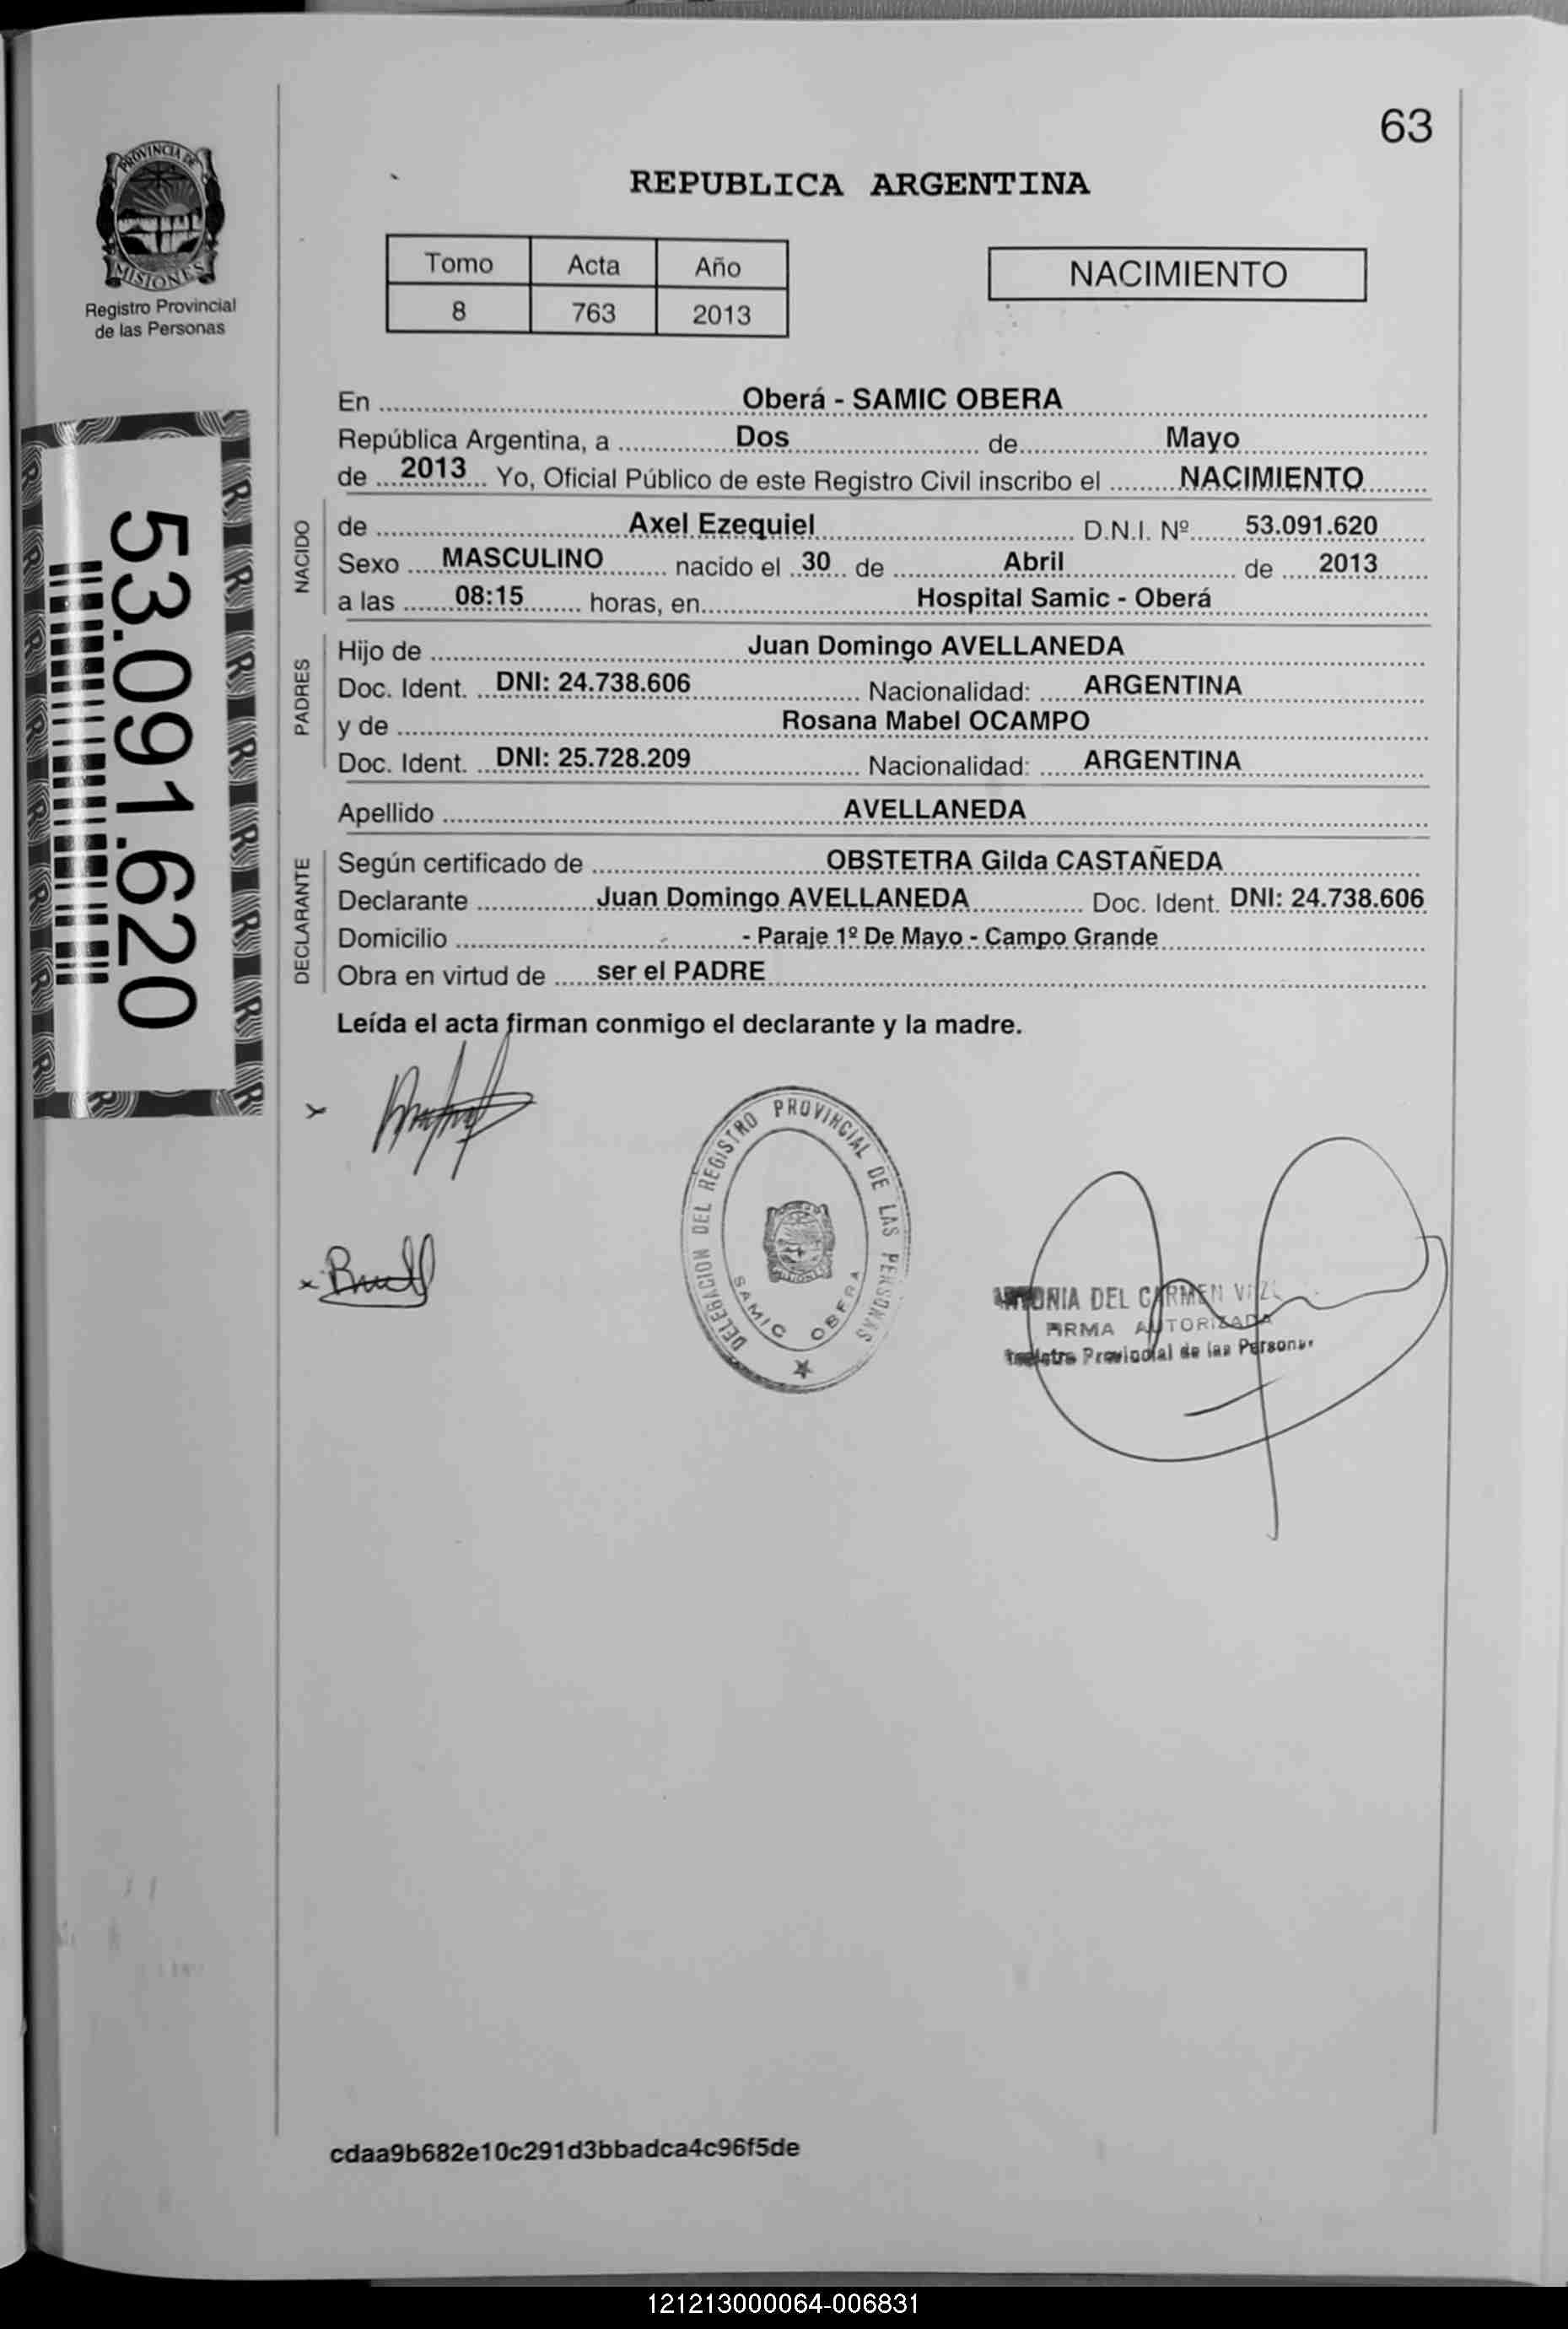 63
PROVINCIA DE
MISIONES
Registro Provincial
de las Personas
REPUBLICA ARGENTINA
Tomo Acta Año
8 763 2013
NACIMIENTO
53.091.620
En Oberá - SAMIC OBERA
República Argentina, a Dos de Mayo
de 2013 Yo, Oficial Público de este Registro Civil inscribo el NACIMIENTO
NACIDO
de Axel Ezequiel D.N.I. Nº 53.091.620
Sexo MASCULINO nacido el 30 de Abril de 2013
a las 08:15 horas, en Hospital Samic - Oberá
PADRES
Hijo de Juan Domingo AVELLANEDA
Doc. Ident. DNI: 24.738.606 Nacionalidad: ARGENTINA
y de Rosana Mabel OCAMPO
Doc. Ident. DNI: 25.728.209 Nacionalidad: ARGENTINA
Apellido AVELLANEDA
DECLARANTE
Según certificado de OBSTETRA Gilda CASTAÑEDA
Declarante Juan Domingo AVELLANEDA Doc. Ident. DNI: 24.738.606
Domicilio - Paraje 1º De Mayo - Campo Grande
Obra en virtud de ser el PADRE
Leída el acta firman conmigo el declarante y la madre.
DELEGACION DEL REGISTRO PROVINCIAL DE LAS PERSONAS
SAMIC OBERA
DEL CARMEN
FIRMA AUTORIZADA
Provincial de las
cdaa9b682e10c291d3bbadca4c96f5de
121213000064-006831